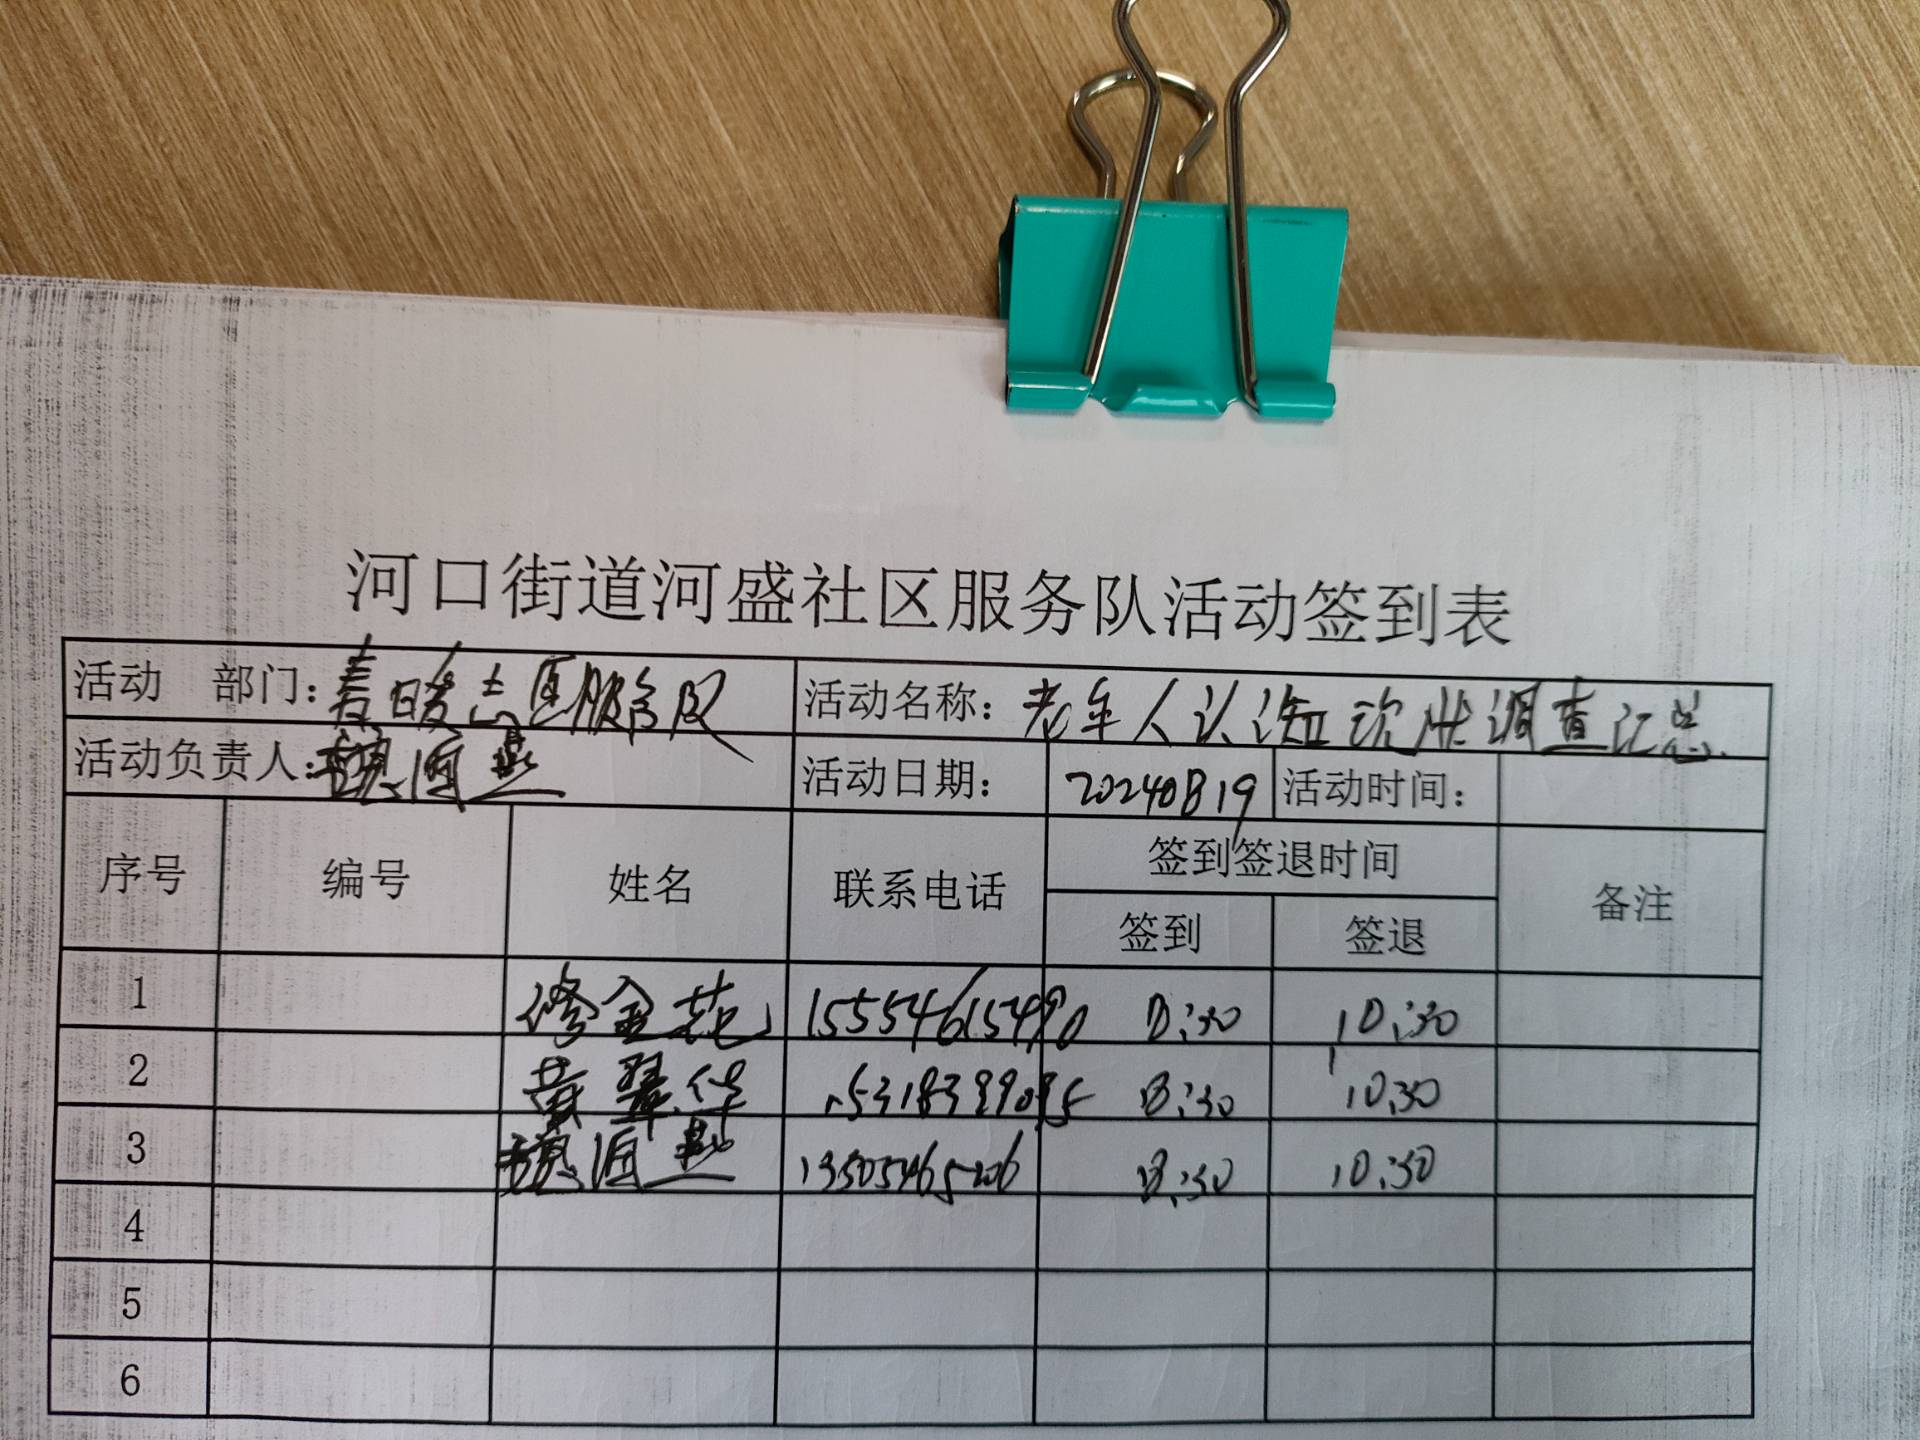 河口街道河盛社区服务队活动签到表
活动 部门: 春暖志愿服务队 活动名称: 老年人认知现状调查汇总
活动负责人: 魏海燕 活动日期: 20240819 活动时间:
序号 编号 姓名 联系电话 签到签退时间 备注
签到 签退
1 修金花 15554615490 8:30 10:30
2 黄翠华 15318399095 8:30 10:30
3 魏海燕 13505465206 8:30 10:30
4
5
6